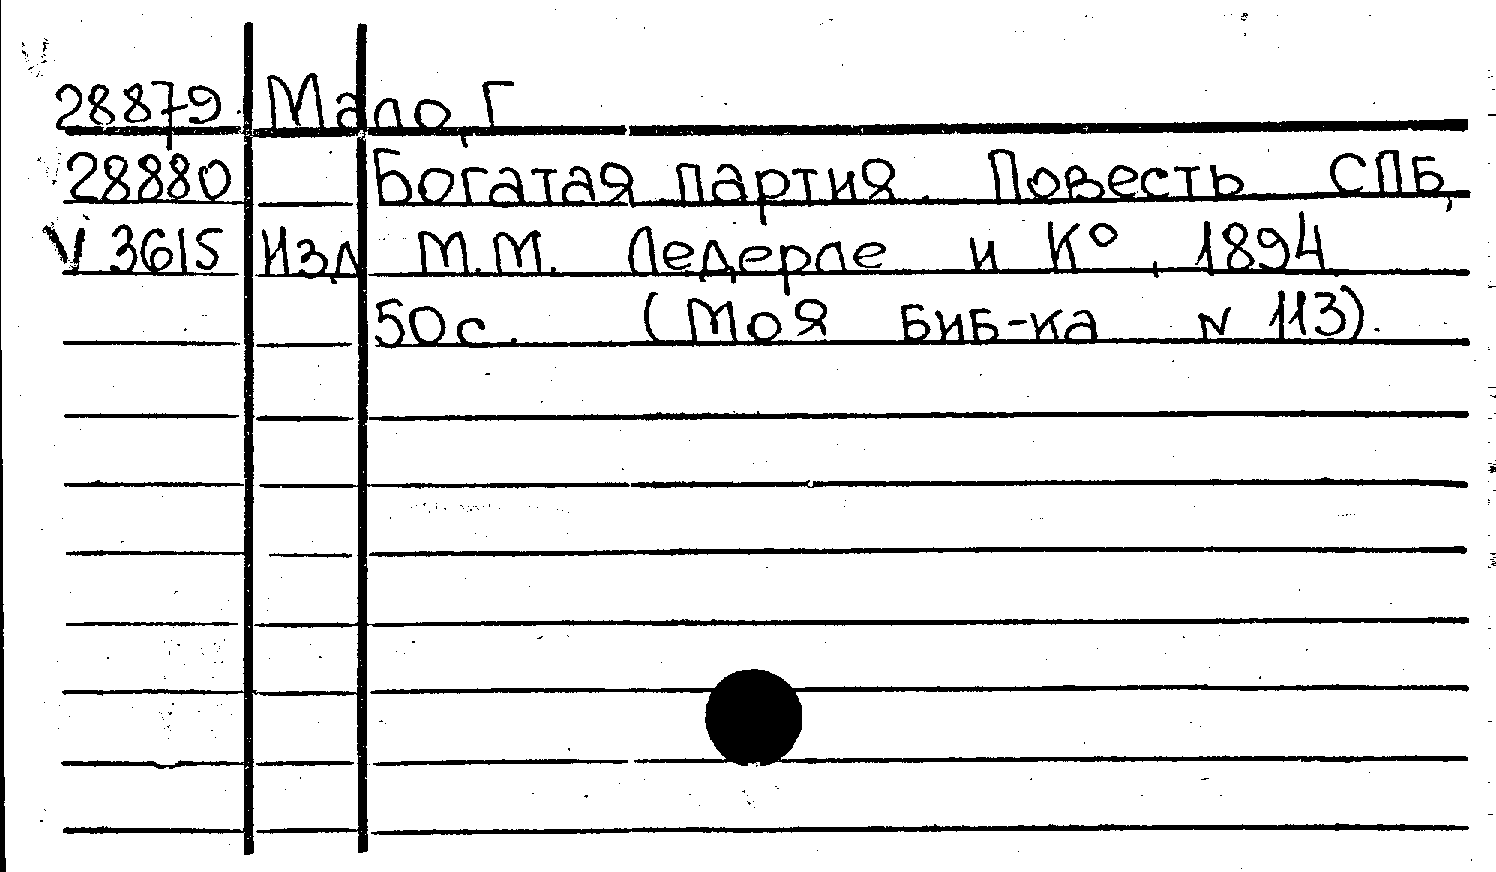 28879 Мало, Г
28880 Богатая партия. Повесть СПБ,
V 3615 Изд М.М. Ледерле и К°, 1894
50с. (Моя биб-ка N 113).